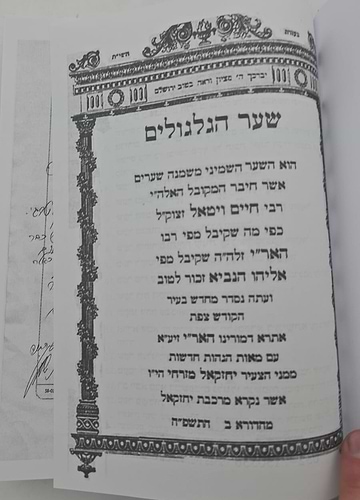 בעזרת השי״ת
יברכך ה׳ מציון וראה בטוב ירושלם
שער הגלגולים
הוא השער השמיני משמנה שערים
אשר חיבר המקובל האלה״י
רבי חיים ויטאל זצוק״ל
כפי מה שקיבל מפי רבו
האר״י זלה״ה שקיבל מפי
אליהו הנביא זכור לטוב
ועתה נסדר מחדש בעיר
הקודש צפת
אתרא דמורינו האר״י זיע״א
עם מאות הגהות חדשות
ממני הצעיר יחזקאל מזרחי הי״ו
אשר נקרא מרכבת יחזקאל
מהדורא ב התשפ״ח